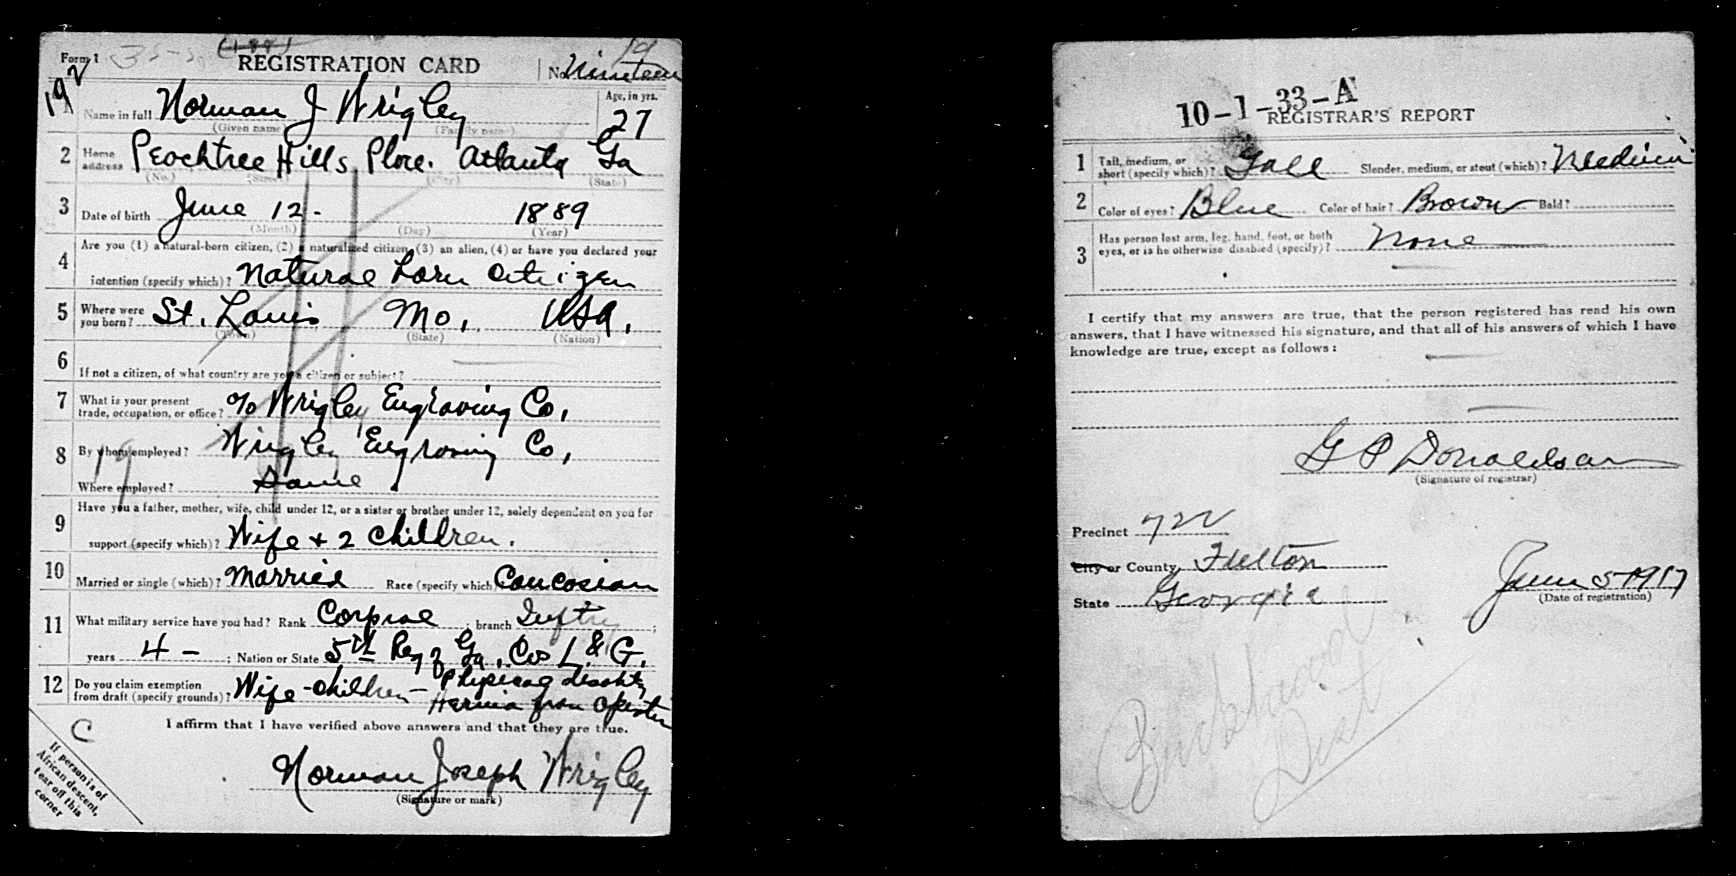 Form 1
REGISTRATION CARD
19
No. Nineteen
192
1 Name in full Norman J Wrigley
(Given name) (Family name)
Age, in yrs.
27
2 Home address Peachtree Hills Place. Atlanta Ga
(No.) (Street) (City) (State)
3 Date of birth June 12 - 1889
(Month) (Day) (Year)
4 Are you (1) a natural-born citizen, (2) a naturalized citizen, (3) an alien, (4) or have you declared your
intention (specify which)? Natural born citizen
5 Where were you born? St. Louis Mo, USA.
(Town) (State) (Nation)
6 If not a citizen, of what country are you a citizen or subject?
7 What is your present trade, occupation, or office? % Wrigley Engraving Co,
8 By whom employed? Wrigley Engraving Co,
Where employed? Same
19
9 Have you a father, mother, wife, child under 12, or a sister or brother under 12, solely dependent on you for
support (specify which)? Wife + 2 children.
10 Married or single (which)? Married Race (specify which) Caucasian
11 What military service have you had? Rank Corpral ; branch Inftry ;
years 4 - ; Nation or State 5th Reg of Ga, Cos L & G.
12 Do you claim exemption from draft (specify grounds)? Wife - children - Physical
Hernia from
I affirm that I have verified above answers and that they are true.
C
Norman Joseph Wrigley
(Signature or mark)
If person is of
African descent,
tear off this
corner
10-1-33-A
REGISTRAR'S REPORT
1 Tall, medium, or short (specify which)? Tall Slender, medium, or stout (which)? Medium
2 Color of eyes? Blue Color of hair? Brown Bald?
3 Has person lost arm, leg, hand, foot, or both
eyes, or is he otherwise disabled (specify)? None
I certify that my answers are true, that the person registered has read his own
answers, that I have witnessed his signature, and that all of his answers of which I have
knowledge are true, except as follows:
G P Donaldson
(Signature of registrar)
Precinct 722
City or County Fulton
State Georgia
June 5 1917
(Date of registration)
Buckhead
Dist